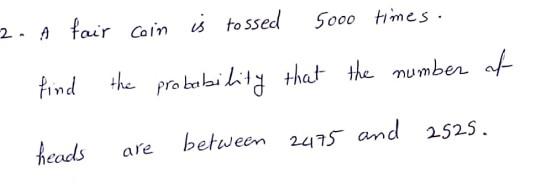 2. A fair coin is tossed 5000 times.
find the probability that the number of
heads are between 2475 and 2525.